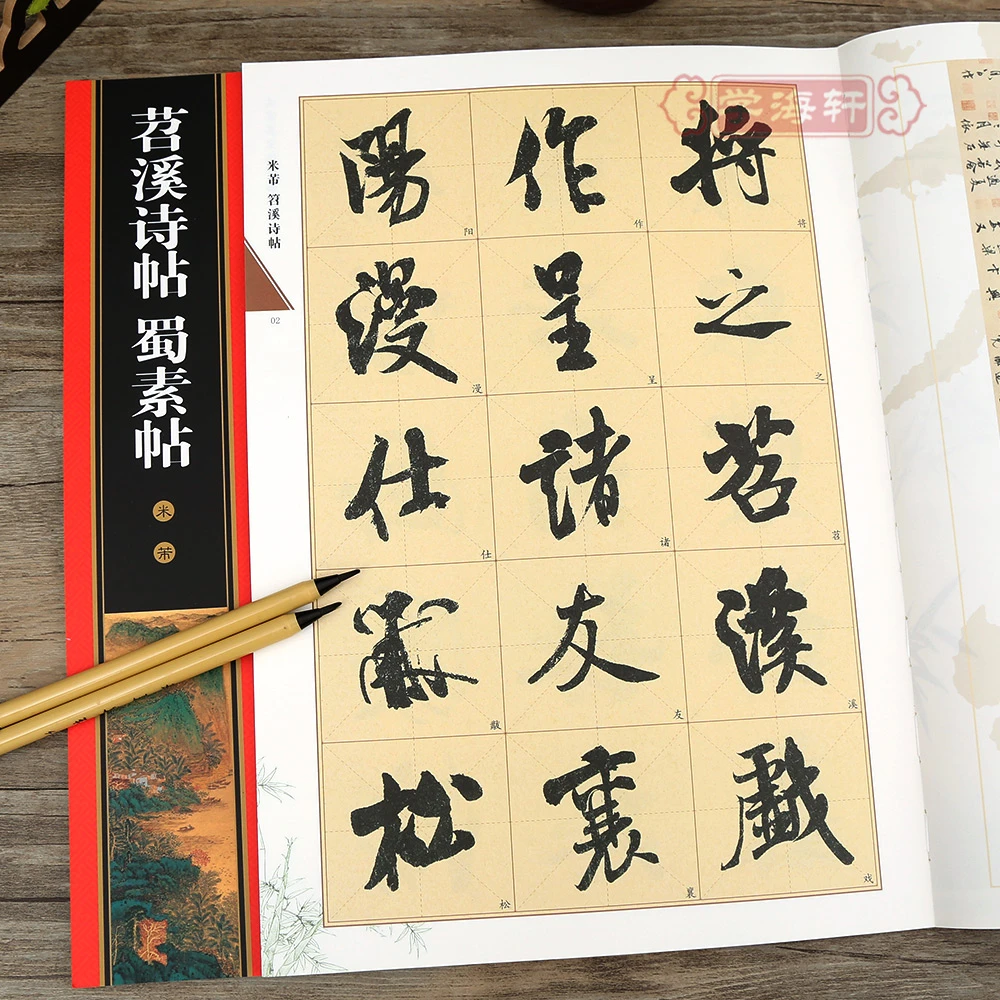 苕溪诗帖 蜀素帖
米芾
米芾 笤溪诗帖
02
將之苕溪戲
作呈諸友襄
陽漫仕黻松
将
之
苕
溪
戏
作
呈
诸
友
襄
阳
漫
仕
黻
松
学海轩